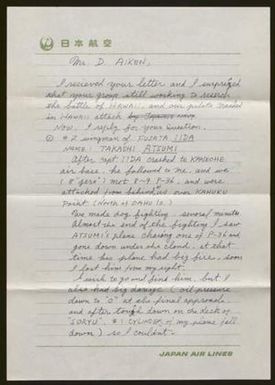 日本航空
Mr. D. AIKEN,
I recieved your letter and I surprized
that your group still working to reserch
the battle of HAWAII, and our pilots
in HAWAII attack by Japanese navy
NOW, I reply for your question.
① #2 wingman of FUSATA IIDA
NAME: TAKASHI ATSUMI
After capt IIDA crashed to KANEOHE
air base, he followed to me, and we
(8 zero's) met 8~9 P-36, and were
attacked from behind over KAHUKU
Point (North of OAHU Is.)
We made dog fighting several minutes
Almost the end of the fighting I saw
ATSUMI's plane chasing one of P-36 and
gone down under the cloud, at that
time his plane had big fire, soon
I lost him from my sight.
I wish to go and find him, but I
also had big damage (oil pressure
down to "0" at the final approach
and after tough down on the deck of
"SORYU", #1 CYLINDER of my plane fall
down) so I couldn't.
JAPAN AIR LINES